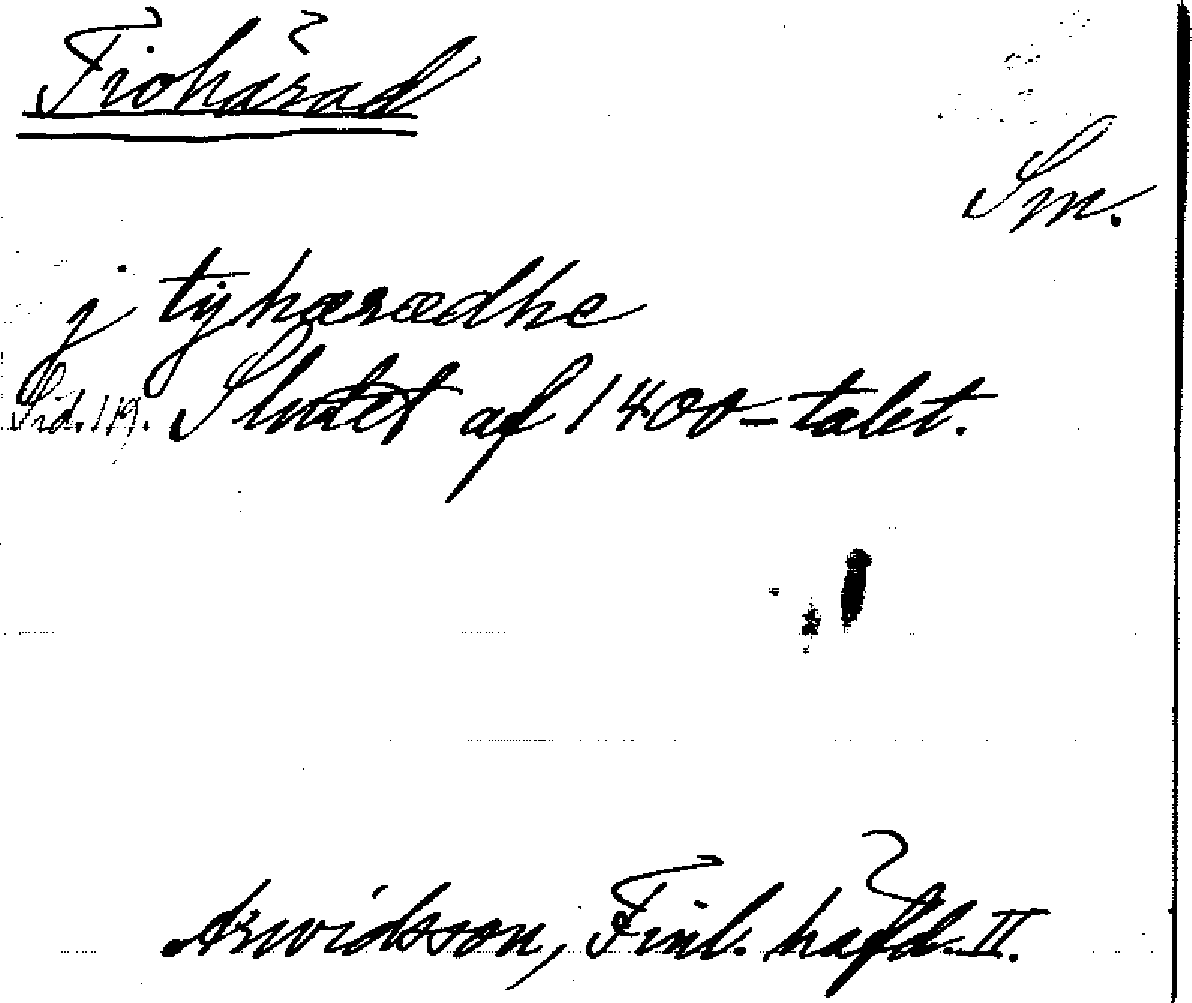 Tiohärad
Sm.
j tijhærædhe
Sid. 119. Slutet af 1400-talet.
Arwidsson, Finl. häfd. II.